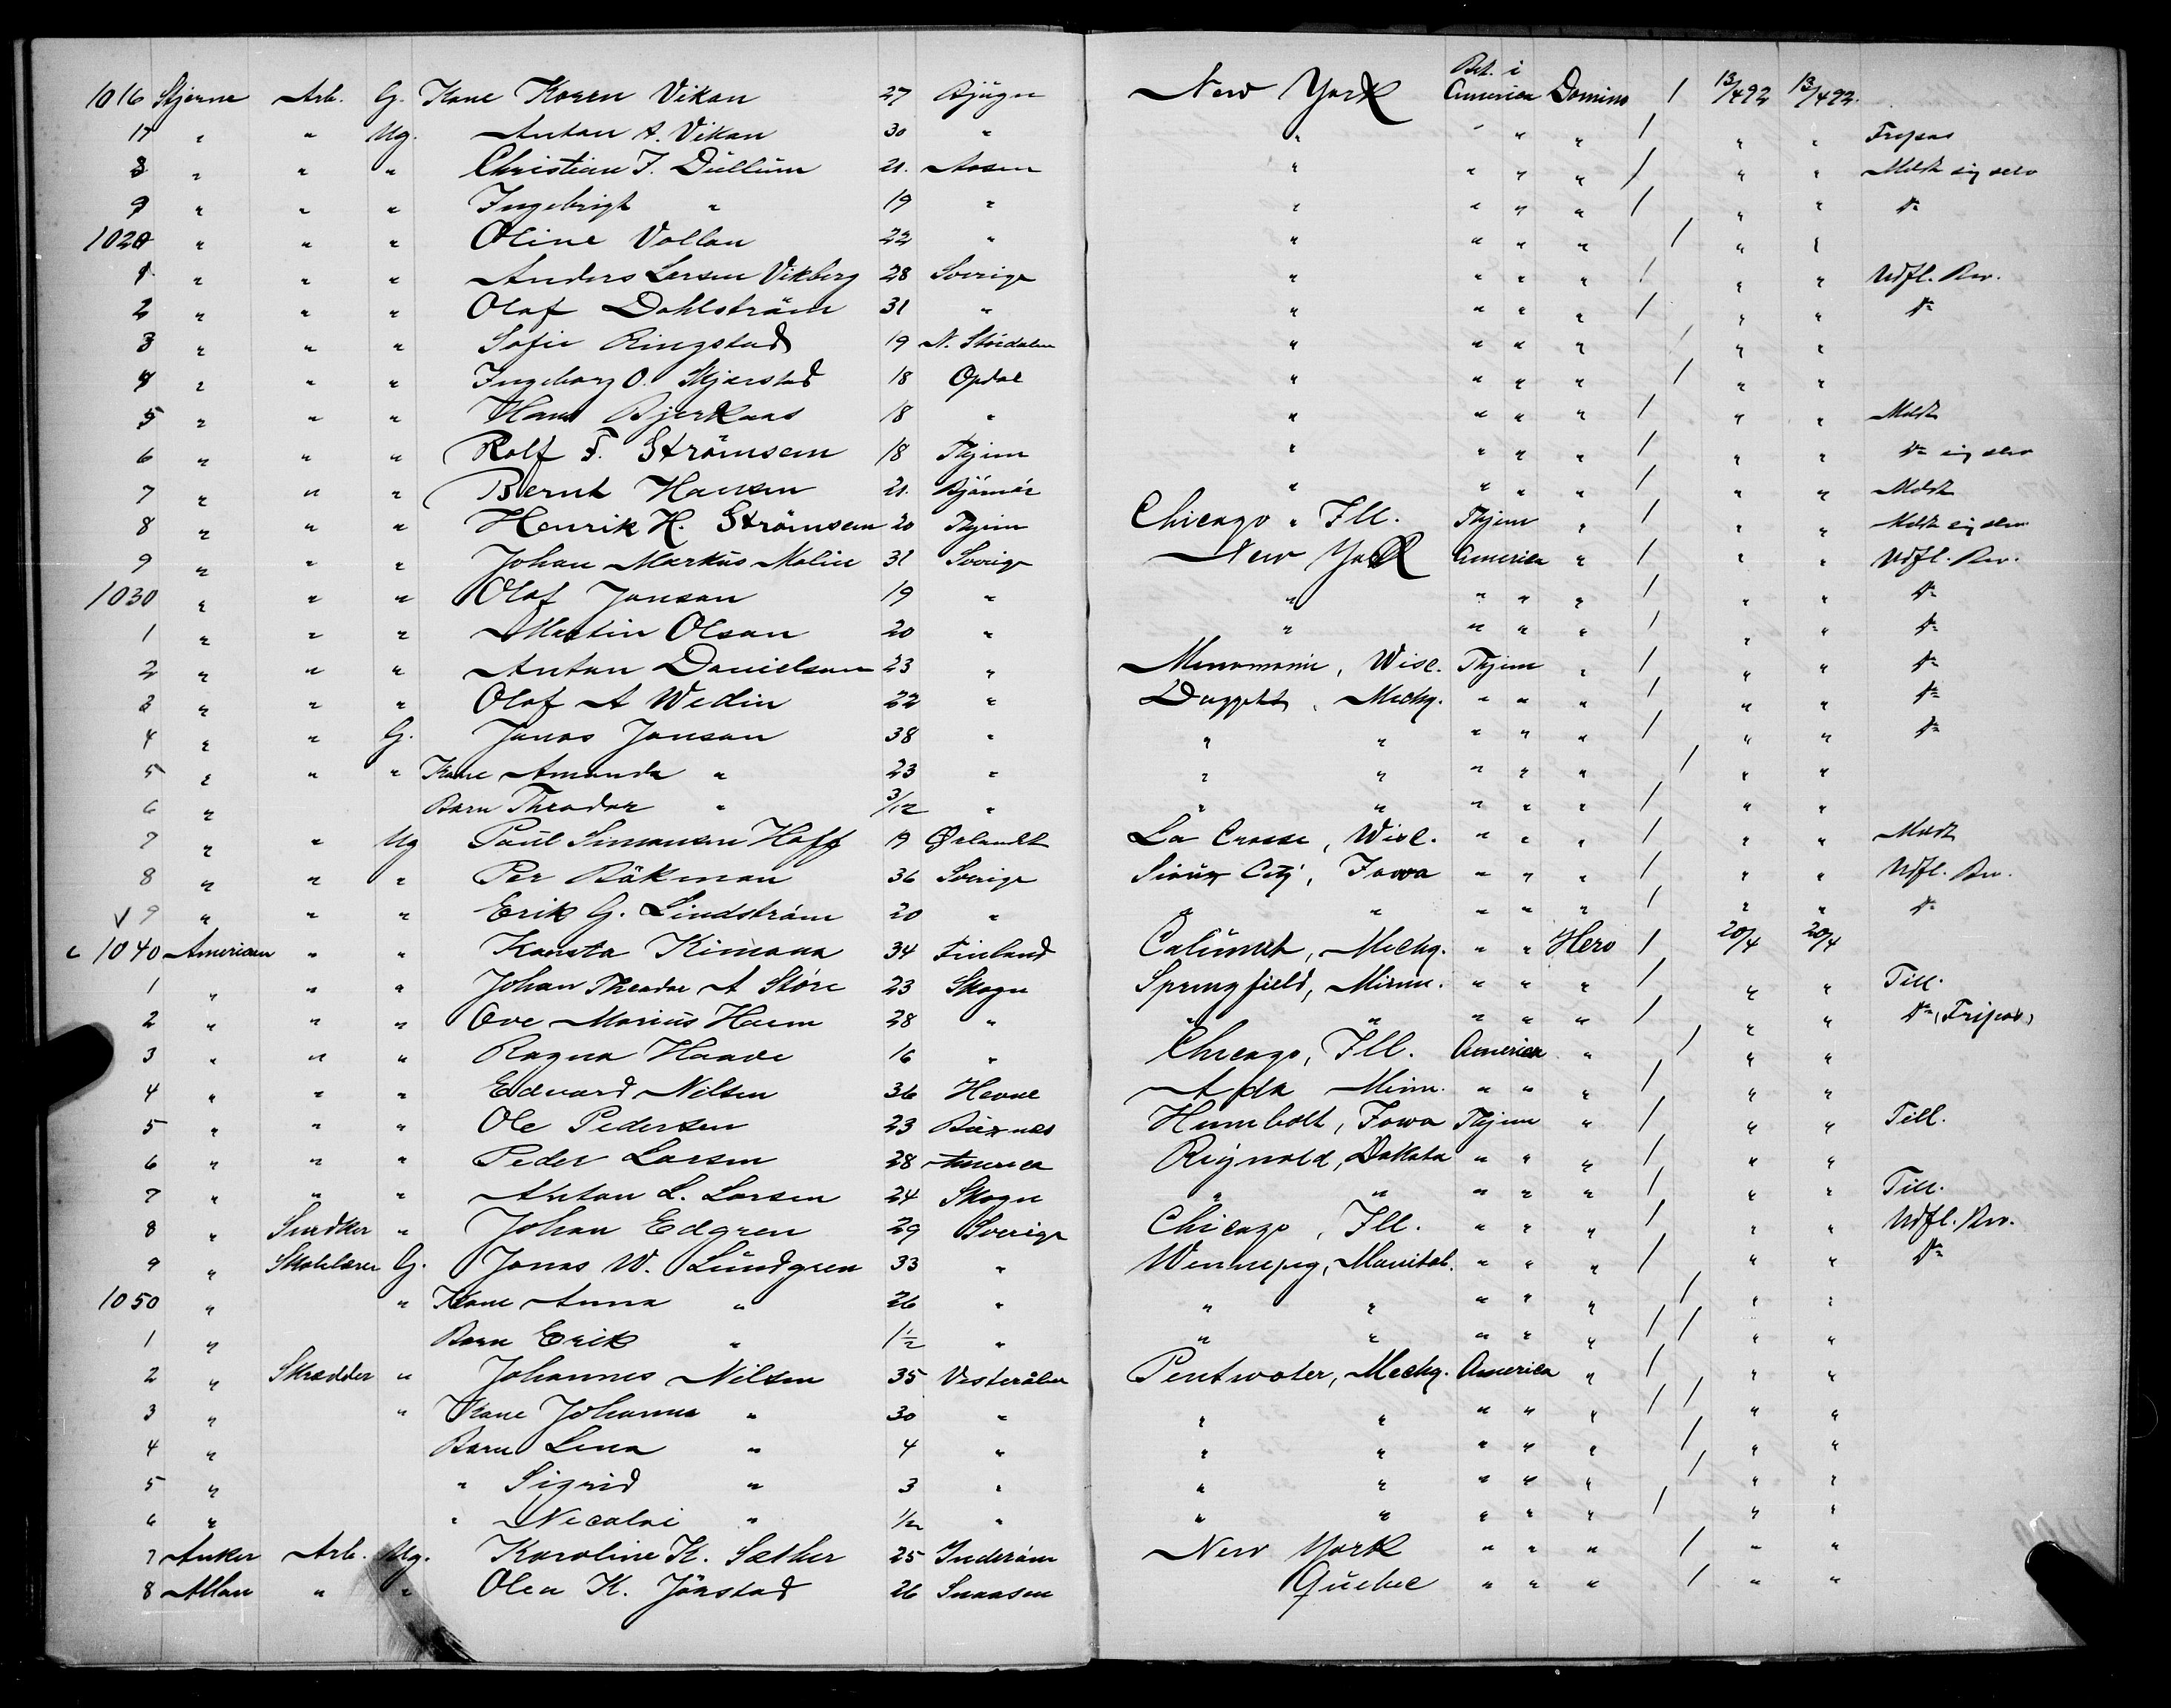 1016 Stjerne Arb. G. Kone Koren Vikan 27 Bjugn New York Bet. i America Domino / 13/4 92 13/4 92
17 " " Ug. Anton A. Vikan 30 " " " " " / " " Fripas
8 " " " Christian J. Düllüm 21. Aasen " " " " / " " Meldt sig selv
9 " " " Ingebrigt " 19 " " " " " / " " do
1020 " " " Oline Vollan 22 " " " " " / " "
1 " " " Anders Larsen Vikberg 28 Sverige " " " " / " " Udfl. Bev.
2 " " " Olaf Dahlström 31 " " " " " / " " do
3 " " " Sofie Ringstad 19 N. Stördalen " " " " / " "
4 " " " Ingeborg O. Skjerstad 18 Opdal " " " " / " "
5 " " " Hans Bjerkaas 18 " " " " " / " " Meldt
6 " " " Rolf F. Strömsem 18 Thjem " " " " / " " do sig selv
7 " " " Bernt Hansen 21. Bjørnør " " " " / " " Meldt
8 " " " Henrik H. Strömsem 20 Thjem Chicago, Ill. Thjem " / " " Meldt sig selv
9 " " " Johan Markus Molin 31 Sverige New York America " / " " Udfl. Bev.
1030 " " " Olof Jonson 19 " " " " " / " " do
1 " " " Martin Olson 20 " " " " " / " " do
2 " " " Anton Danielson 23 " Menomonie, Wisc. Thjem " / " " do
3 " " " Olof A Wedin 22 " Daggett, Michg. " " " / " " do
4 " " G. Jonas Jonson 38 " " " " " " / " " do
5 " " " Kone Amanda " 23 " " " " " " / " "
6 " Barn Theodor " 3/12 " " " " " " / " "
7 " " Ug Paul Simonsen Hoff 19 Ørlandt La Crosse, Wisc. " " " / " " Meldt
8 " " " Per Bäkman 36 Sverige Sioux City, Iowa " " " / " " Udfl. Bev.
V 9 " " " Erik G. Lindström 20 " " " " " " / " " do
1040 American " " Kansta Kimona 34 Finland Calumet, Michg. " " Hero / 20/4 20/4
1 " " " Johan Theodor A Störe 23 Skogn Springfield, Minn. " " " / " " Till.
2 " " " Ove Marius Haem 28 " " " " " " / " " do (Fripas)
3 " " " Ragna Haave 16 " Chicago, Ill. America " / " "
4 " " " Edvard Nilsen 36 Hevne Ada Minn. " " " / " "
5 " " " Ole Pedersen 23 Humbolt, Iowa Thjem " / " " Till.
6 " " " Peder Larsen 28 America Rignold, Dakota " " " / " "
7 " " " Anton L. Larsen 24 Skogn " " " " " / " " Till.
8 " Snedker " Johan Edgren 29 Sverige Chicago, Ill. " " " / " " Udfl. Bev.
9 " Skolelærer G. Jonas W. Lündgren 33 " Winnepeg, Manitob. " " " / " " do
1050 " " Kone Anna " 26 " " " " " " / " "
1 " Barn Erik " 1½ " " " " " " / / " "
2 " Skrædder " Johannes Nilsen 35 Vesterålen Pentwater, Michg. America " / " "
3 " " Kone Johanna " 30 " " " " " " / / " "
4 " Barn Lina " 4 " " " " " " / " "
5 " " Sigrid " 3 " " " " " " / " "
6 " " Nicolai " ½ " " " " " " / " "
7 Anker Arb. Ug. Karoline K. Sæther 25 Inderøen New York " " " / " "
8 Allan " " Olea K. Jörstad 26 Snaasen Quebec " " " / " "